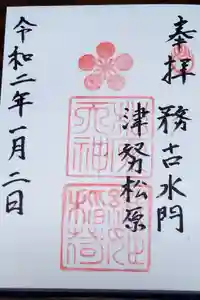 奉拝
務古水門
津努松原
天神
稲荷
令和二年一月二日